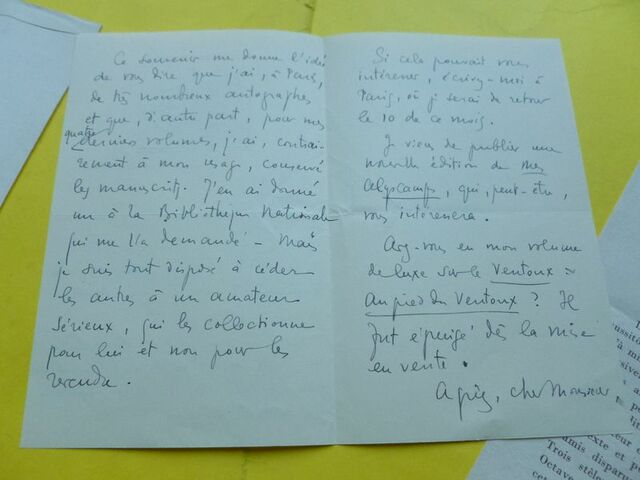 Ce souvenir me donne l'idée
de vous dire que j'ai, à Paris,
de très nombreux autographes
et que, d'autre part, pour mes
quatre
derniers volumes, j'ai, contrai-
rement à mon usage, conservé
les manuscrits. J'en ai donné
un à la Bibliothèque Nationale
qui me l'a demandé - Mais
je suis tout disposé à céder
les autres à un amateur
sérieux, qui les collectionne
pour lui et non pour les
revendre.
Si cela pouvait vous
intéresser, écrivez-moi à
Paris, où je serai de retour
le 10 de ce mois.
Je viens de publier une
nouvelle édition de mes
Alyscamps, qui, peut-être,
vous intéressera.
Avez-vous eu mon volume
de luxe sur le Ventoux =
Au pied du Ventoux ? Il
fut épuisé dès la mise
en vente.
Agréez, cher Monsieur
amis disparu
Trois stèle
Octave